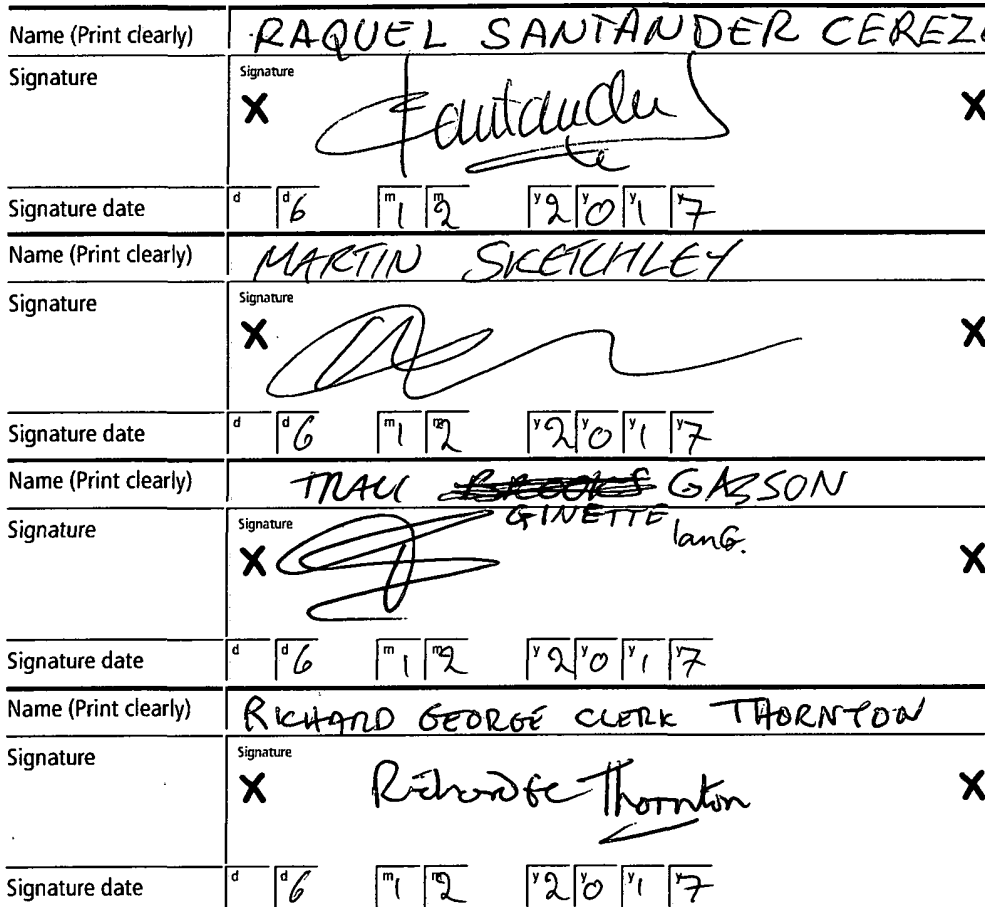 Name (Print clearly) RAQUEL SANTANDER CEREZO
Signature Signature X Santander X
Signature date d d6 m1 m2 y2 y0 y1 y7
Name (Print clearly) MARTIN SKETCHLEY
Signature Signature X X
Signature date d d6 m1 m2 y2 y0 y1 y7
Name (Print clearly) TRACI GASSON
GINETTE lanG.
Signature Signature X X
Signature date d d6 m1 m2 y2 y0 y1 y7
Name (Print clearly) RICHARD GEORGE CLERK THORNTON
Signature Signature X Richard GC Thornton X
Signature date d d6 m1 m2 y2 y0 y1 y7